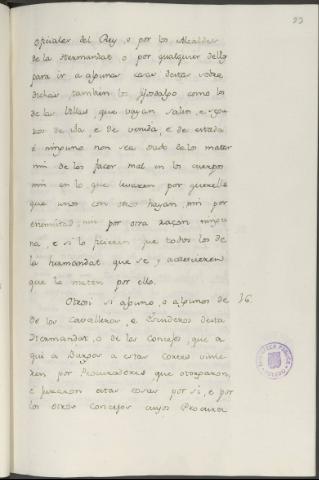 93
oficiales del Rey, o por los Alcaldes
de la Hermandat, o por qualquier dellos
para ir a algunas cosas destas sobre
dichas, tambien los fijosdalgo como los
de las Villas, que vayan salvos, e segu-
ros de ida, e de venida, e de estada
e ninguno non sea osado de los matar
nin de les facer mal en los cuerpos
nin en lo que levaren por querella
que unos con otros hayan, nin por
enemistad, nin por otra raçon ningu-
na, e si lo ficieren que todos los de
la hermandat que se y acaecieren
que lo maten por ello.
Otrosi si alguno, o algunos de 16.
de los Cavalleros, e Escuderos desta
Hermandat, o de los Concejos, que a
qui a Burgos a estas Cortes vinie-
ren por Procuradores que otorgaron,
e juraron estas cosas por si, e por
los otros Concejos cuyos Procura
BIBLIOTECA PUBLICA
TOLEDO